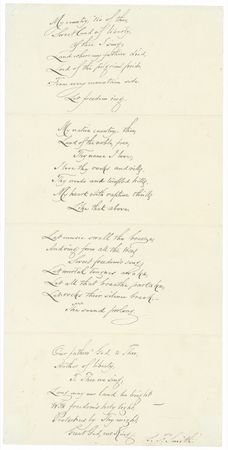 My country, 'tis of thee,
Sweet land of liberty,
Of thee I sing;
Land where my fathers died,
Land of the pilgrims' pride,
From every mountain side
Let freedom ring.
My native country, thee,
Land of the noble, free,
Thy name I love;
I love thy rocks and rills,
Thy woods and templed hills;
My heart with rapture thrills
Like that above.
Let music swell the breeze,
And ring from all the trees
Sweet freedom's song;
Let mortal tongues awake,
Let all that breathe partake,
Let rocks their silence break,
The sound prolong.
Our fathers' God, to Thee,
Author of liberty,
To Thee we sing;
Long may our land be bright
With freedom's holy light;
Protect us by Thy might,
Great God, our King.
S. F. Smith.